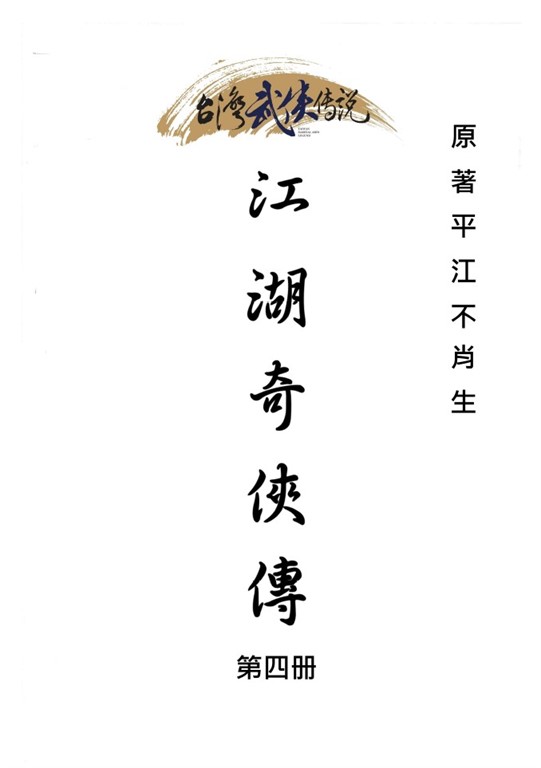 台灣武俠傳說
原著平江不肖生
江湖奇俠傳
第四册